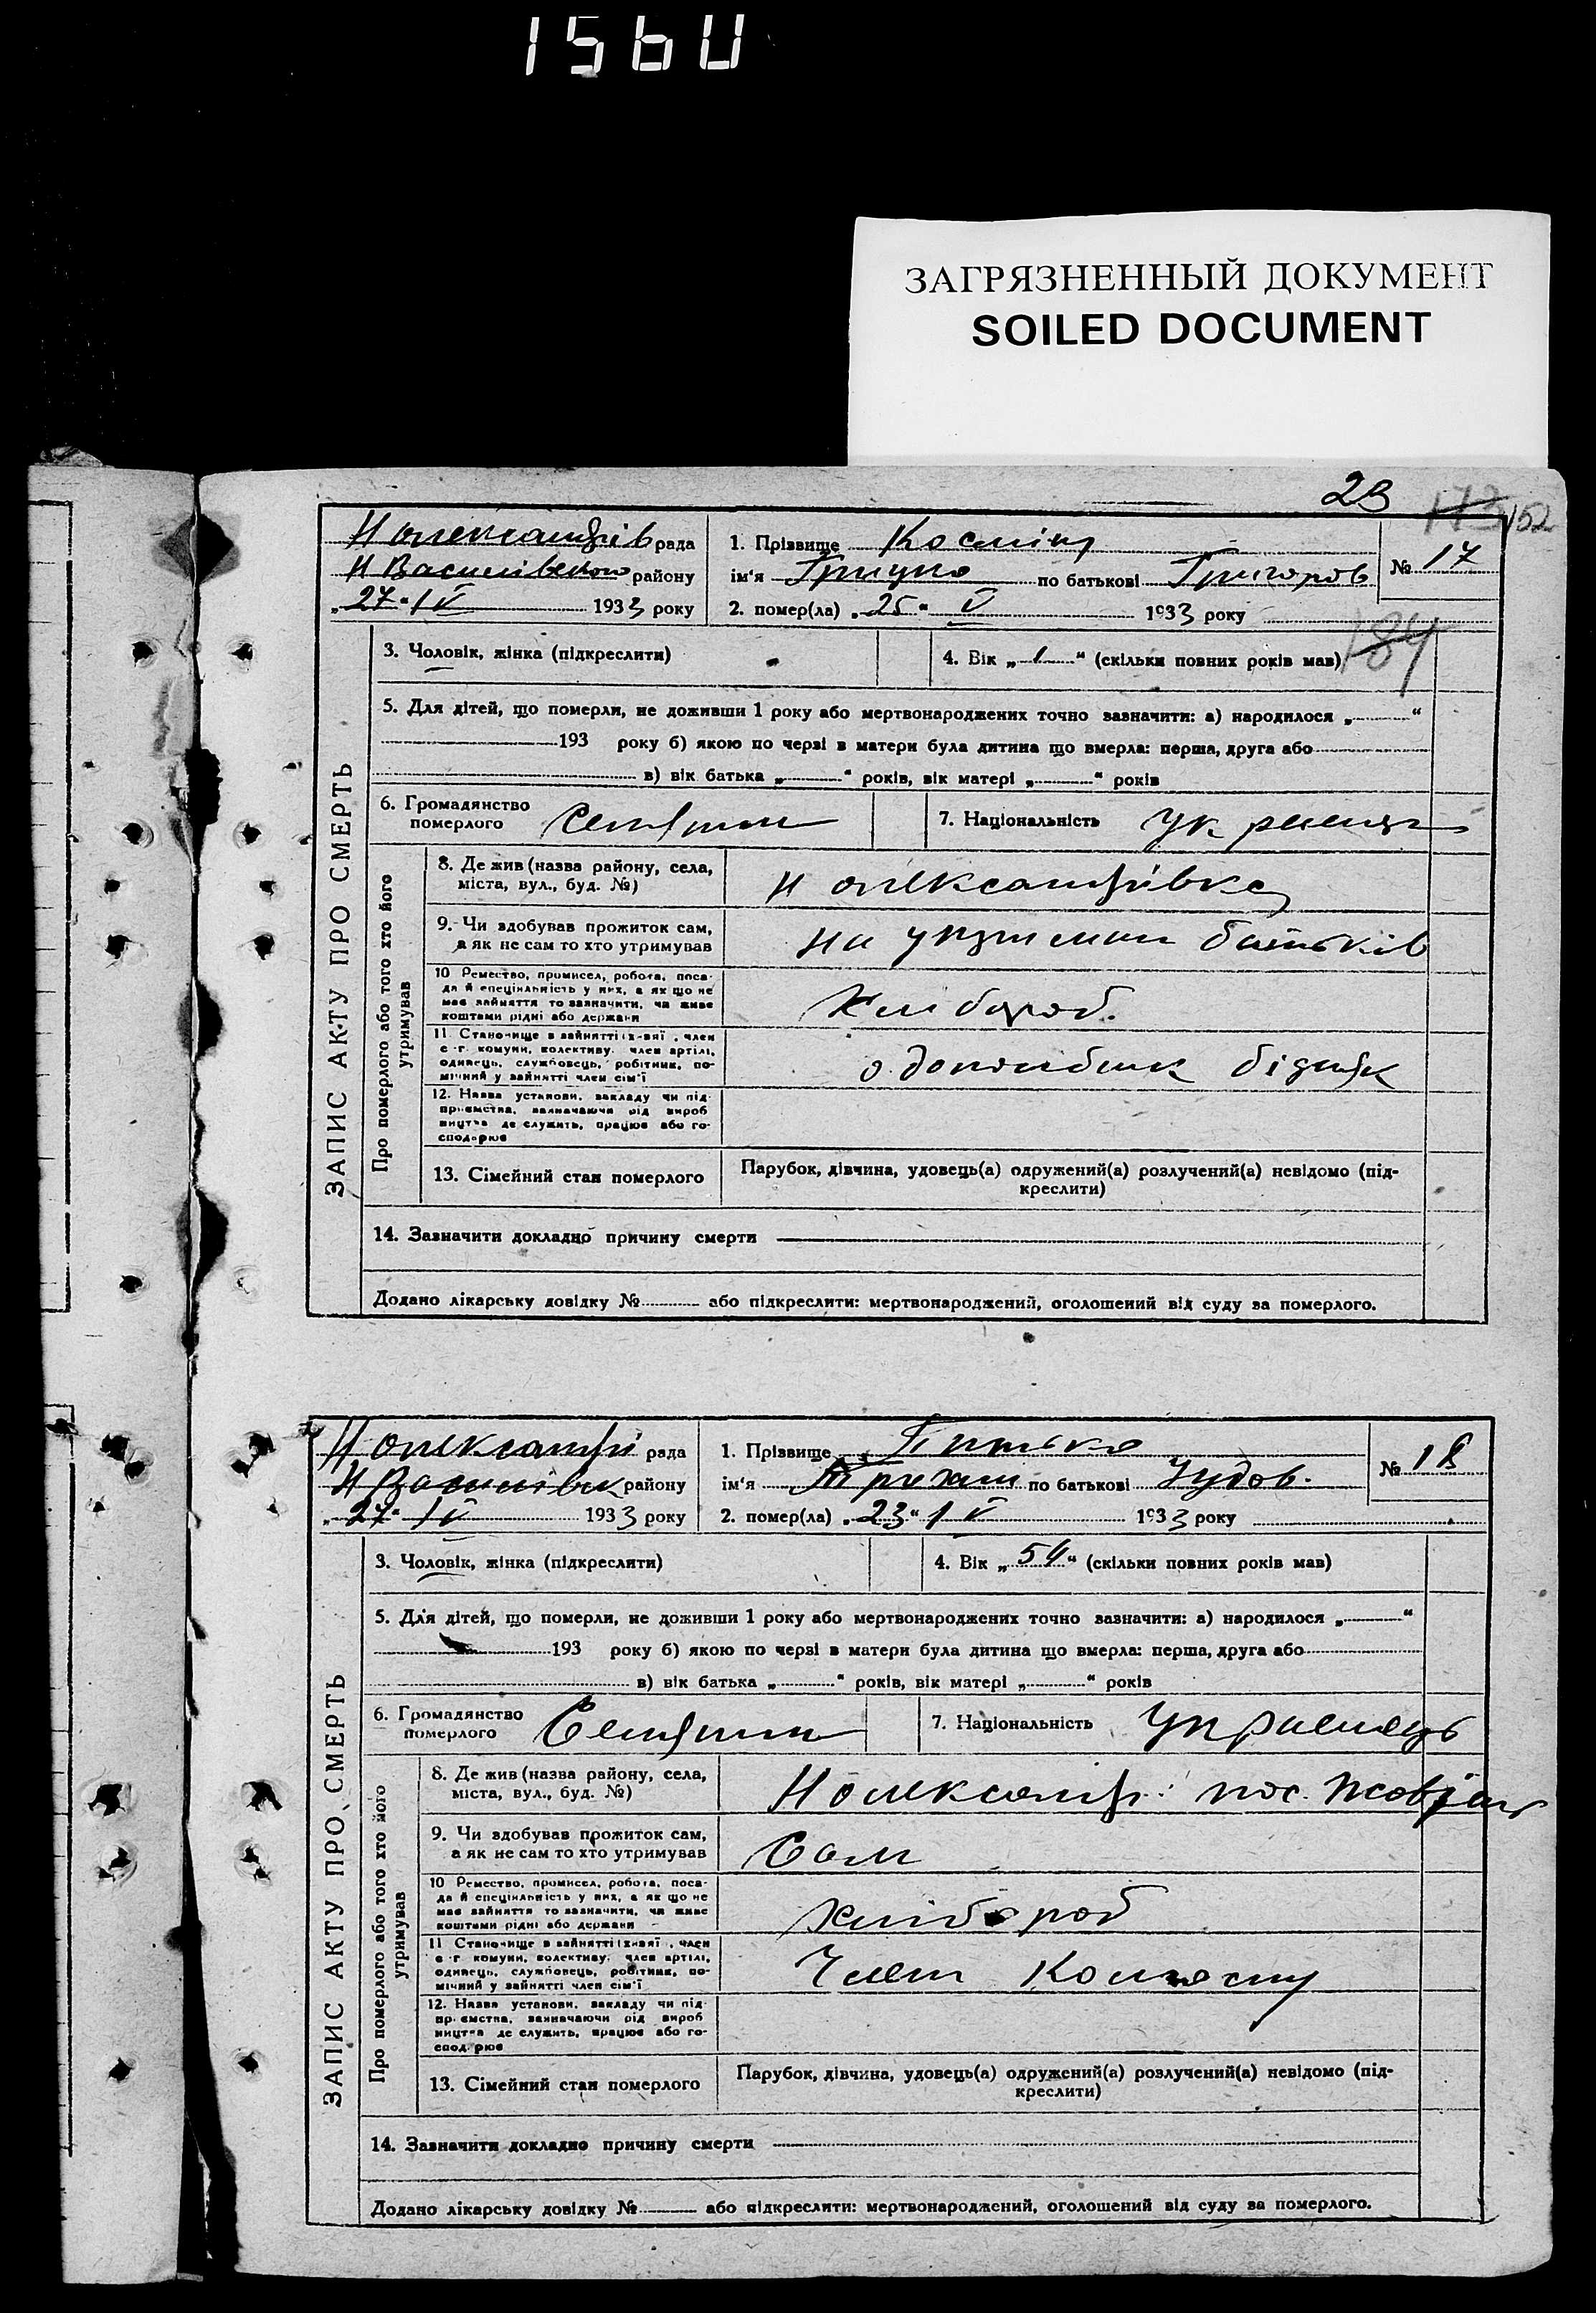 1560
ЗАГРЯЗНЕННЫЙ ДОКУМЕНТ
SOILED DOCUMENT
23 173 152
Н олександрів рада
Н Василівського району
„27“ IV 1933 року
1. Прізвище
ім‘я Грицко по батькові Григоров
2. помер(ла) „25“ V 1933 року
№ 17
184
ЗАПИС АКТУ ПРО СМЕРТЬ
3. Чоловік, жінка (підкреслити)
4. Вік „1“ (скільки повних років мав)
5. Для дітей, що померли, не доживши 1 року або мертвонароджених точно зазначити: а) народилося „ “
193 року б) якою по черзі в матери була дитина що вмерла: перша, друга або
в) вік батька „ “ років, вік матері „ “ років
6. Громадянство
померлого
7. Національність
Про померлого або того хто його
утримував
8. Де жив (назва району, села,
міста, вул., буд. №)
Н олександрівка
9. Чи здобував прожиток сам,
а як не сам то хто утримував
на утриман батьків
10 Ремество, промисел, робота, поса-
да й спеціяльність у них, а як що не
має зайняття то зазначити, чи живе
коштами рідні або держави
хлібороб.
11. Становище в зайнятті: хазяї, член
с-г. комуни, колективу, член артілі,
одинець, службовець, робітник, по-
мічний у зайнятті член сім‘ї
одноосібник бідняк
12. Назва установи, закладу чи під-
приємства, зазначаючи рід вироб
ництва де служить, працює або го-
сподарює
13. Сімейний стан померлого
Парубок, дівчина, удовець(а) одружений(а) розлучений(а) невідомо (під-
креслити)
14. Зазначити докладно причину смерти
Додано лікарську довідку № або підкреслити: мертвонароджений, оголошений від суду за померлого.
Н олександрі рада
Н Василівск району
„27“ IV 1933 року
1. Прізвище
ім‘я по батькові
2. помер(ла) „23“ IV 1933 року
№ 18
ЗАПИС АКТУ ПРО СМЕРТЬ
3. Чоловік, жінка (підкреслити)
4. Вік „54“ (скільки повних років мав)
5. Для дітей, що померли, не доживши 1 року або мертвонароджених точно зазначити: а) народилося „ “
193 року б) якою по черзі в матери була дитина що вмерла: перша, друга або
в) вік батька „ “ років, вік матері „ “ років
6. Громадянство
померлого
7. Національність Українець
Про померлого або того хто його
утримував
8. Де жив (назва району, села,
міста, вул., буд. №)
Н олександр: пос.
9. Чи здобував прожиток сам,
а як не сам то хто утримував
Сам
10 Ремество, промисел, робота, поса-
да й спеціяльність у них, а як що не
має зайняття то зазначити, чи живе
коштами рідні або держави
хлібороб
11 Становище в зайнятті: хазяї, член
с-г. комуни, колективу, член артілі,
одинець, службовець, робітник, по-
мічний у зайнятті член сім‘ї
Член Колгоспу
12. Назва установи, закладу чи під-
приємства, зазначаючи рід вироб
ництва де служить, працює або го-
сподарює
13. Сімейний стан померлого
Парубок, дівчина, удовець(а) одружений(а) розлучений(а) невідомо (під-
креслити)
14. Зазначити докладно причину смерти
Додано лікарську довідку № або підкреслити: мертвонароджений, оголошений від суду за померлого.